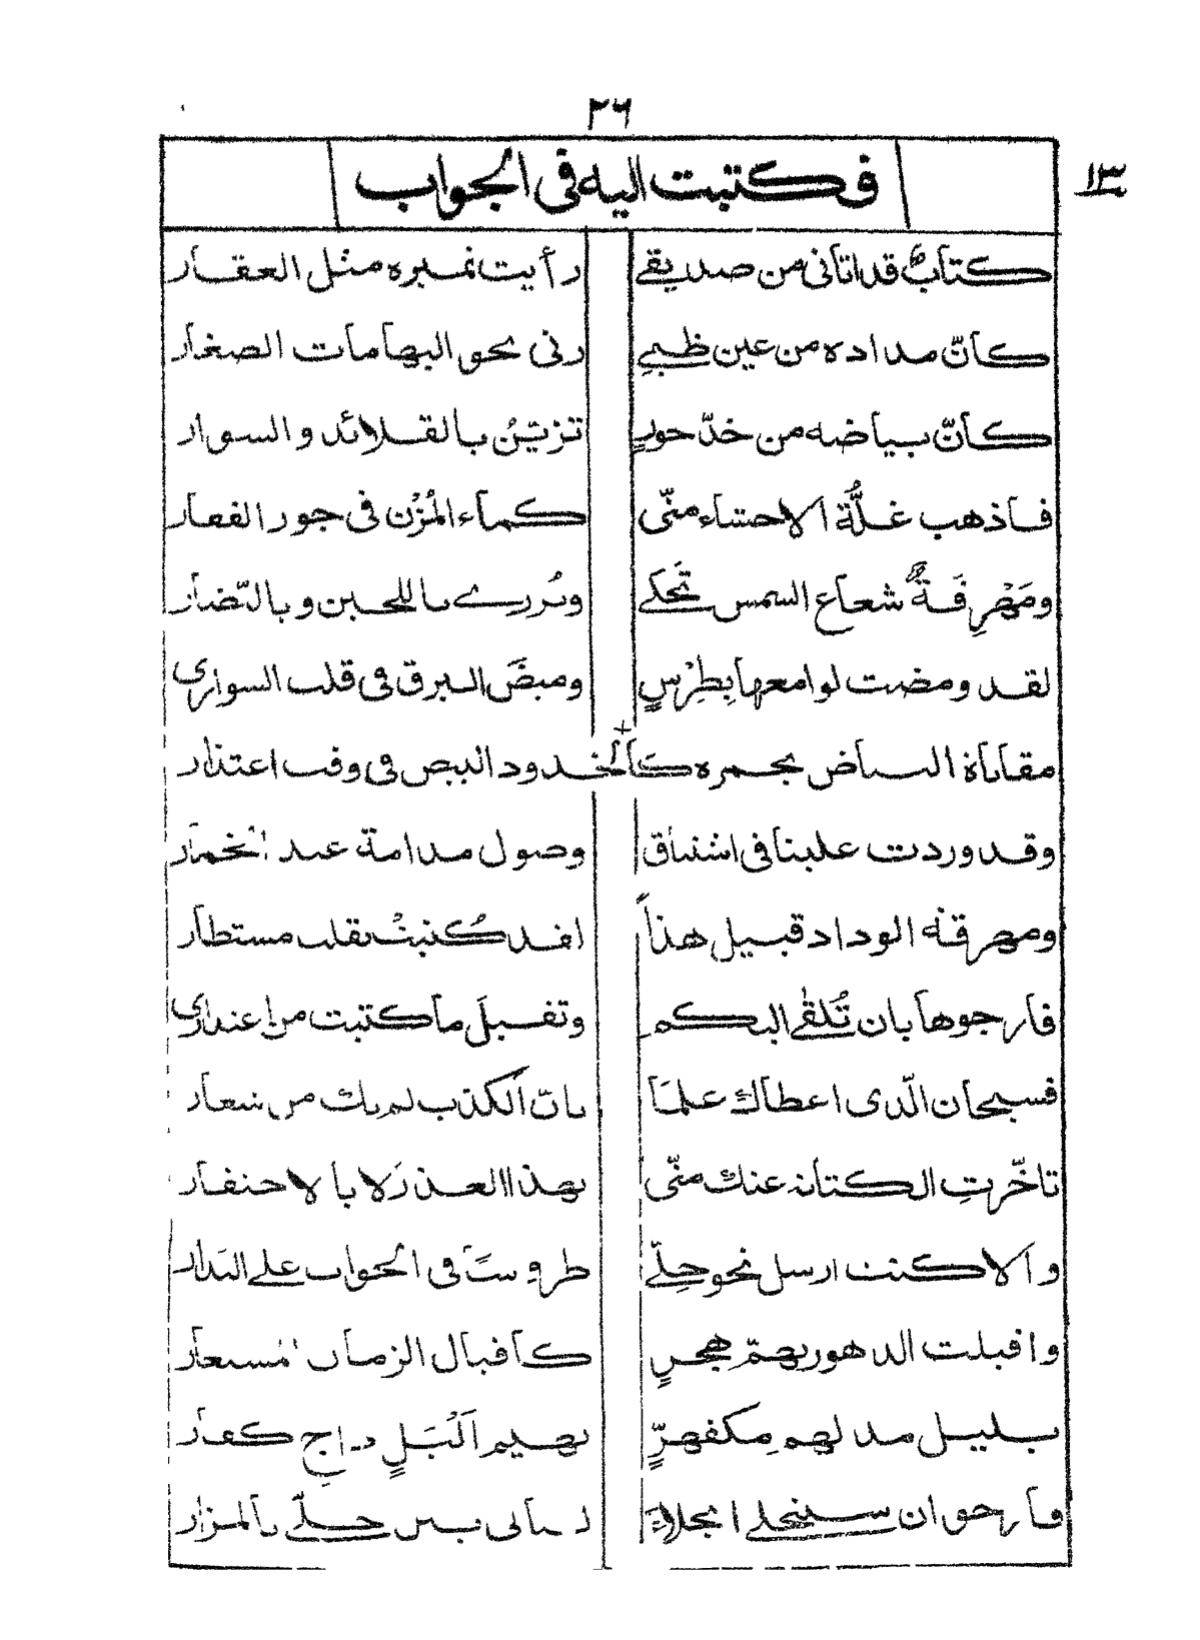 ٢٦
١٣
فكتبت اليه فى الجواب
كتابٌ قد اتانى من صديقے رأيت نميره مثل العقار
كانّ مداده من عين ظبىٍ رنى نحو البهامات الصغار
كانّ بياضه من خدّ حورٍ تزيّنُ بالقلائد والسوار
فاذهب غلُّة الاحشاء منّى كماء المُزْن فى جور القفار
ومَهْرِقَةٌ شعاع الشمس تَحكے وتُزرے باللجين وبالنّضار
لقد ومضت لوامعها بِطِرْسٍ وميضَ البرق فى قلب السوارى
مقاناة البياض بحمره كالخدود البيض فى وقت اعتذار
وقد وردت علينا فى اشتياق وصول مدامة عند الخمار
ومهرقة الوداد قبيل هذاً لقد كُتبتْ بقلب مستطار
فارجوها بان تُلقٰے اليكم وتقبلَ ما كتبت من اعتذارى
فسبحان الّذى اعطاك علماً بانّ الكذب لم يك من شعار
تاخّرتِ الكتابة عنك منّى بهذا العذر لا بالاحتقار
والا كنت ارسل نحو خِلّے طروسًا فى الجواب علے البدار
واقبلت الدهور بهمّ هجرٍ كاقبال الزمان المستعار
بليل مدلهم مكفهرٍّ بهيم اَلْيَلٍ داجٍ كقار
فارجو ان سينجلے انجلاءً ليالى بين خلّے بالمزار